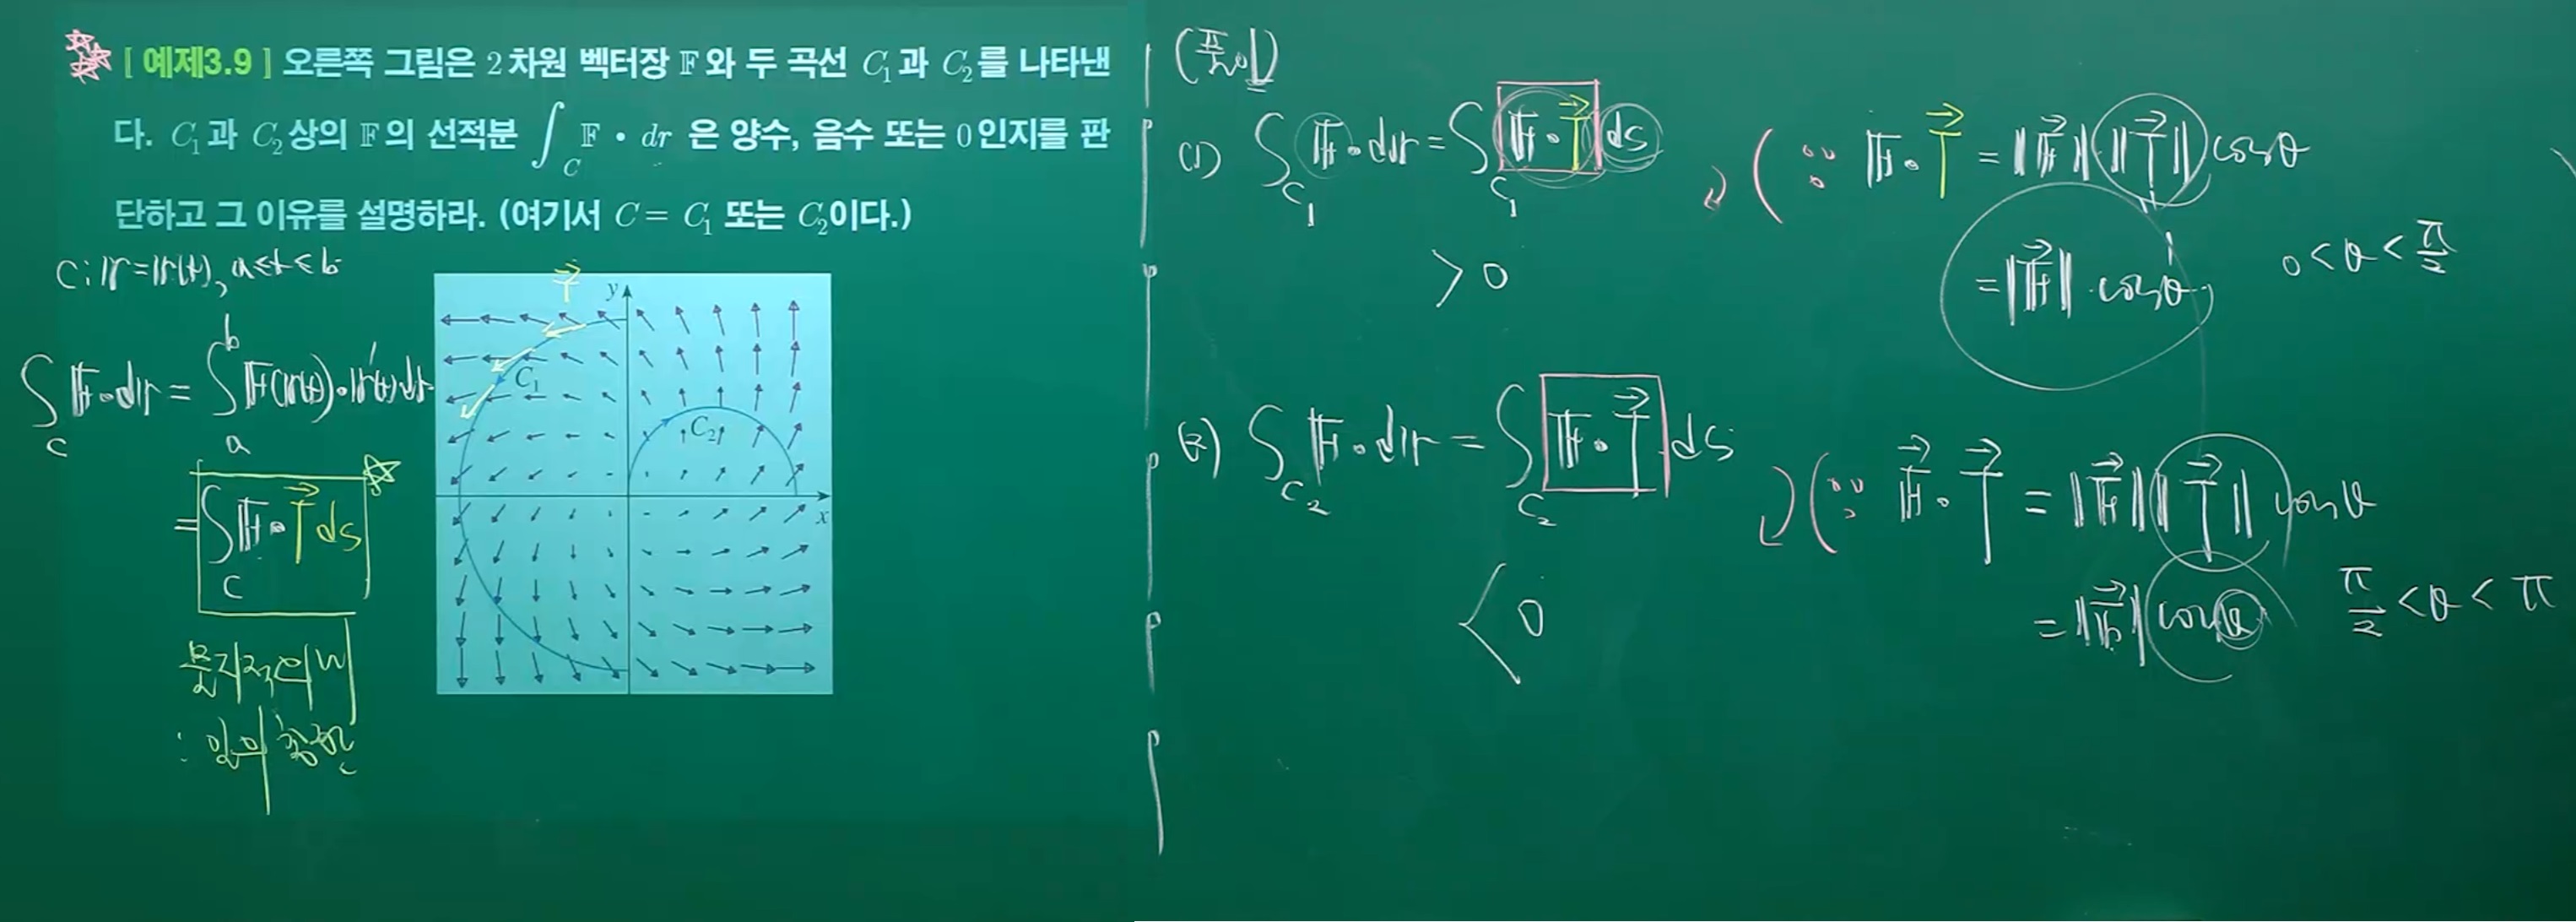 [ 예제3.9 ] 오른쪽 그림은 2차원 벡터장 𝔽와 두 곡선 C₁과 C₂를 나타낸
다. C₁과 C₂상의 𝔽의 선적분 ∫_C 𝔽 • dr 은 양수, 음수 또는 0인지를 판
단하고 그 이유를 설명하라. (여기서 C = C₁ 또는 C₂이다.)
C: 𝕣=𝕣(t), a≤t≤b
∫_C 𝔽•d𝕣 = ∫_a^b 𝔽(𝕣(t))•𝕣'(t)dt
= ∫_C 𝔽•T⃗ ds
물리적 의미
: 일의 총합
T⃗
y
C₁
C₂
x
(풀이)
(1) ∫_C₁ 𝔽•d𝕣 = ∫_C₁ 𝔽•T⃗ ds
> 0
(∵ 𝔽•T⃗ = ‖F⃗‖‖T⃗‖cosθ
1
= ‖F⃗‖ cosθ, 0<θ<π/2
(2) ∫_C₂ 𝔽•d𝕣 = ∫_C₂ 𝔽•T⃗ ds
< 0
(∵ F⃗•T⃗ = ‖F⃗‖‖T⃗‖cosθ
= ‖F⃗‖cosθ π/2<θ<π